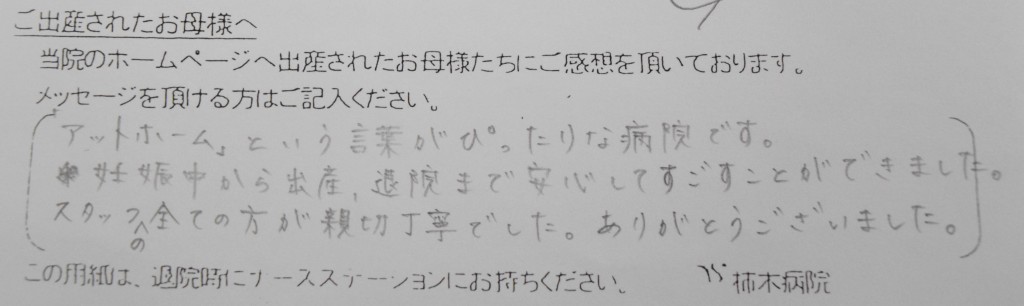 ご出産されたお母様へ
当院のホームページへ出産されたお母様たちにご感想を頂いております。
メッセージを頂ける方はご記入ください。
「アットホーム」という言葉がぴったりな病院です。
妊娠中から出産,退院まで安心してすごすことができました。
スタッフの全ての方が親切丁寧でした。ありがとうございました。
この用紙は、退院時にナースステーションにお持ちください。 柿木病院